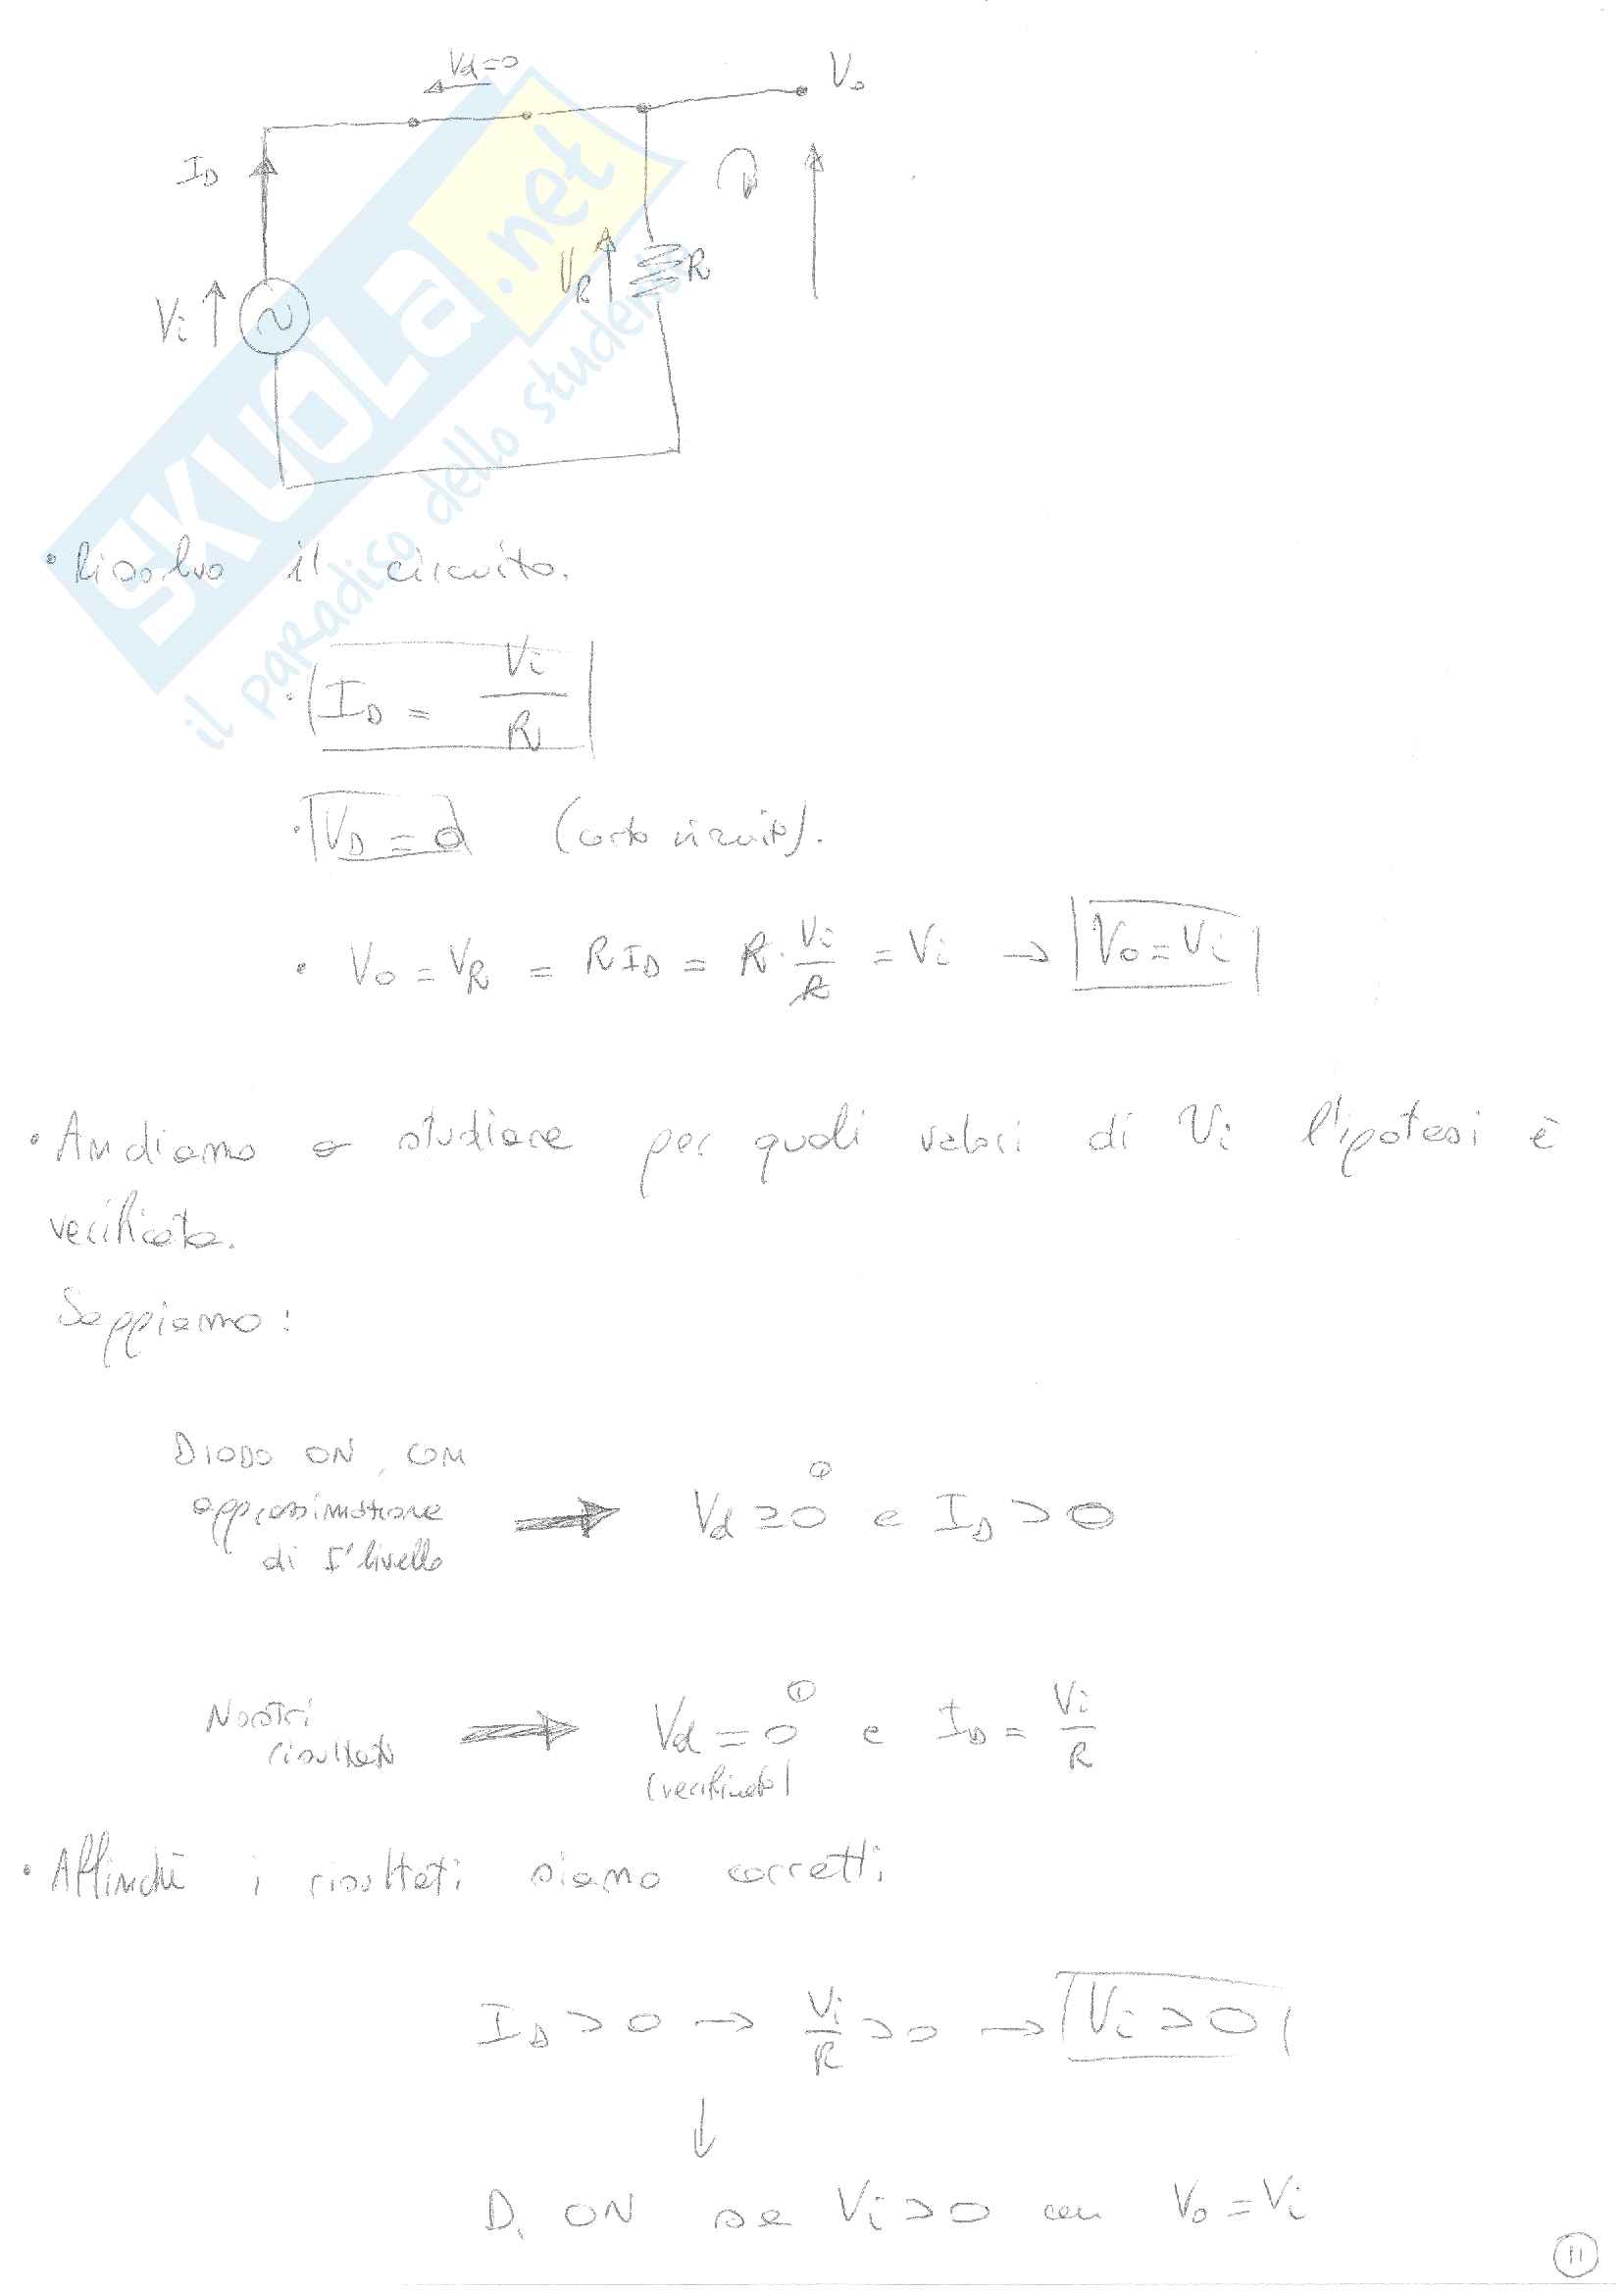 Vd=0
Vo
ID
Vi
VR
R
SKUOLA.net
il paradiso dello studente
• Risolvo il circuito.
• ID = Vi/R
• VD = 0 (corto circuito).
• Vo = VR = R ID = R · Vi/R = Vi → Vo = Vi
• Andiamo a studiare per quali valori di Vi l'ipotesi è
verificata.
Sappiamo:
DIODO ON, CON
approssimazione
di I° livello
Vd ≥ 0 e ID > 0
Nostri
risultati
Vd = 0 ① e ID = Vi/R
(verificato)
• Affinchè i risultati siano corretti
ID > 0 → Vi/R > 0 → Vi > 0
↓
D. ON se Vi > 0 con Vo = Vi
11